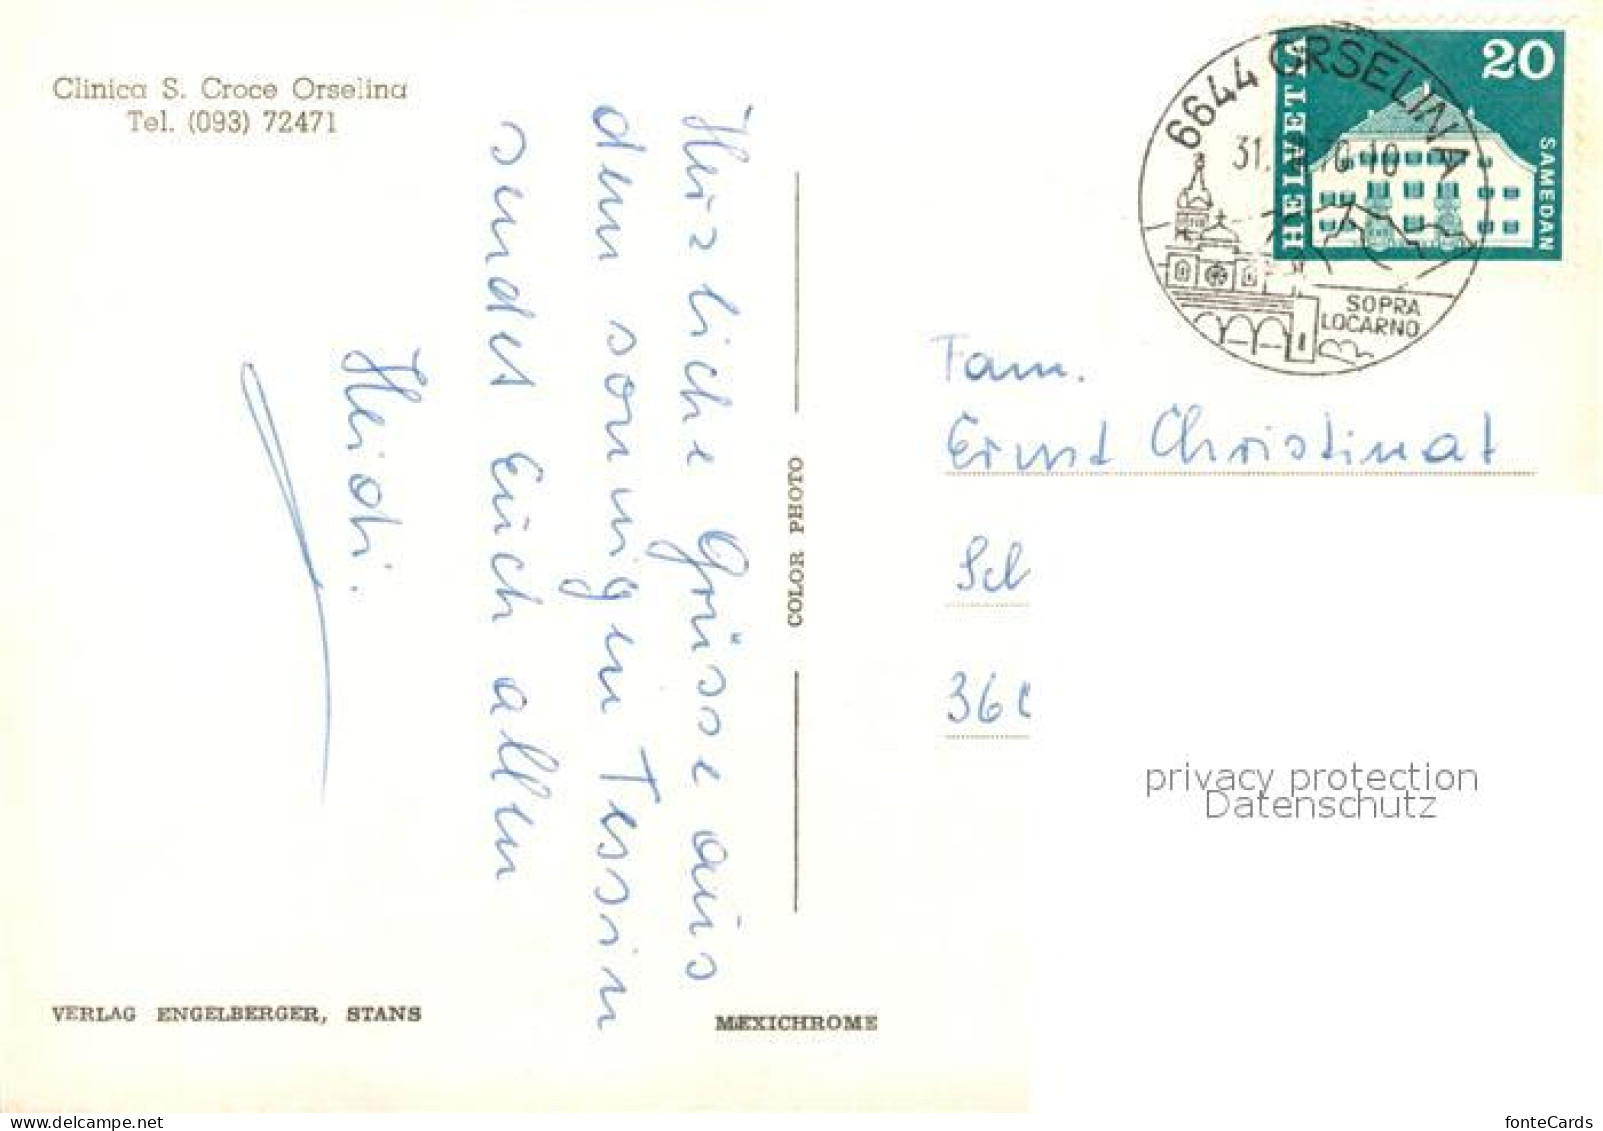 Clinica S. Croce Orselina
Tel. (093) 72471
Herzliche Grüsse aus
dem sonnigen Tessin
sendet Euch allen
Heidi.
COLOR PHOTO
VERLAG ENGELBERGER, STANS
MEXICHROME
6644 ORSELINA
SOPRA
LOCARNO
HELVETIA
20
SAMEDAN
Fam.
Ernst Christinat
privacy protection
Datenschutz
fonteCards